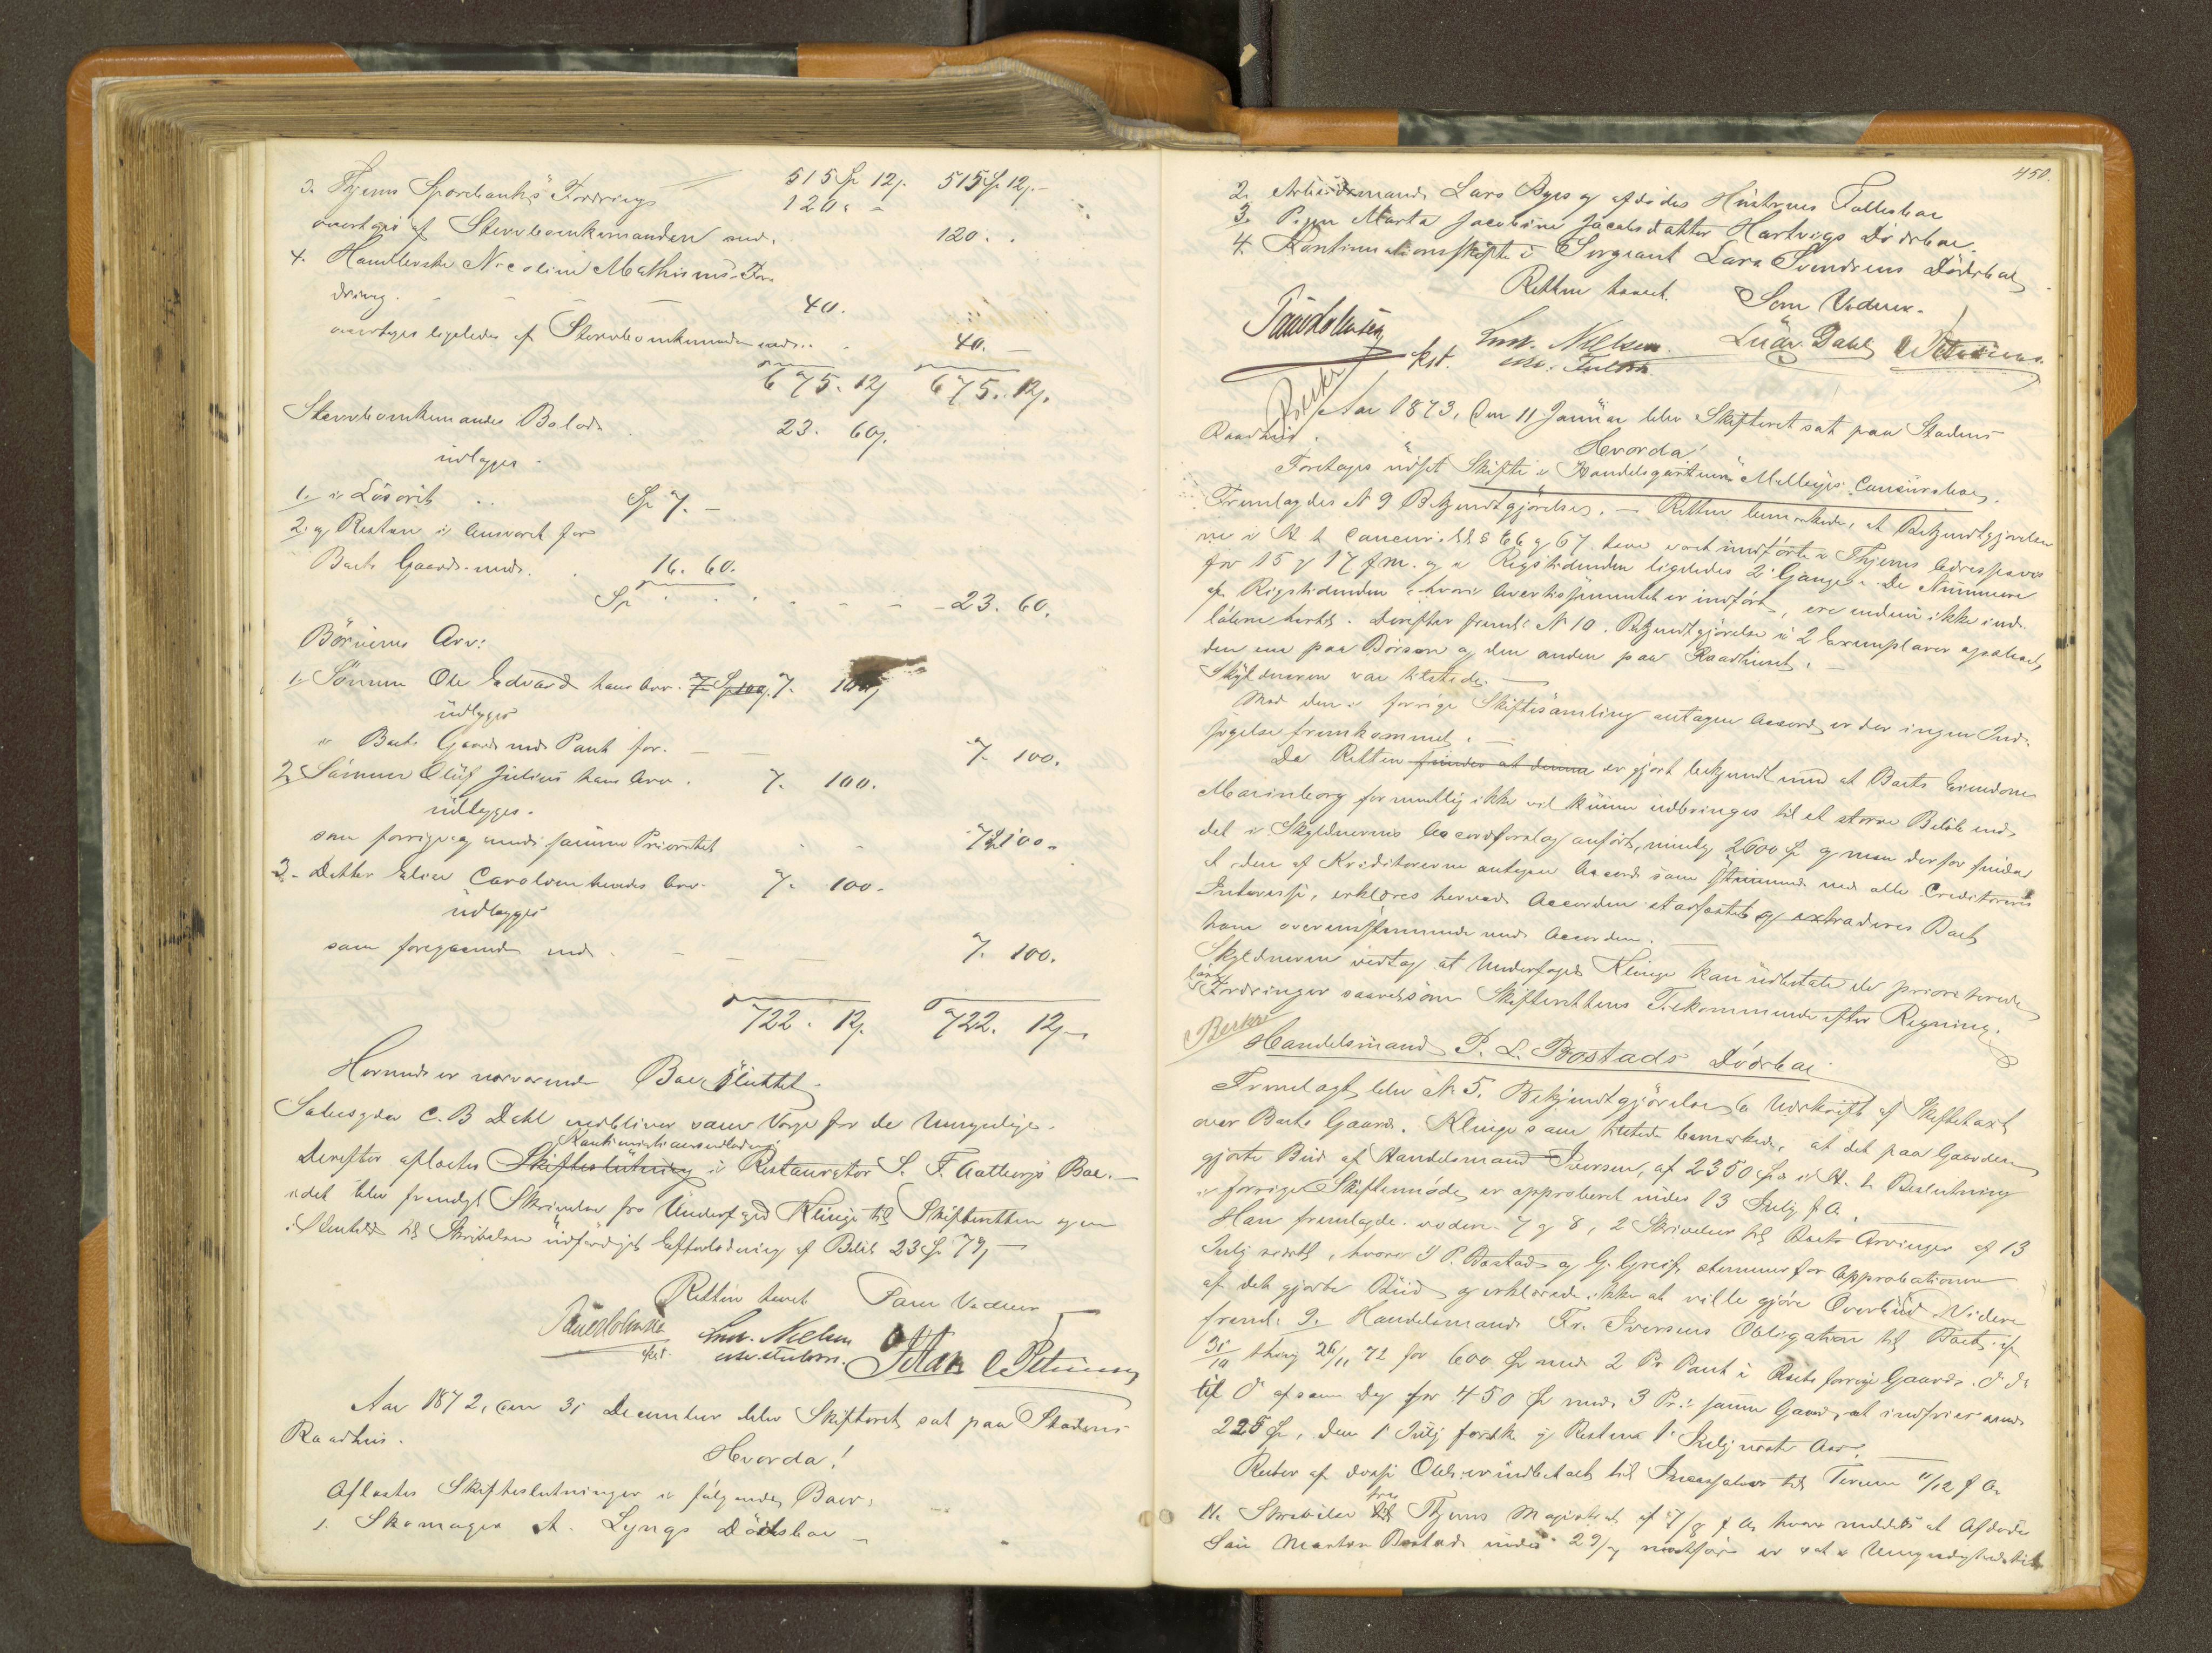 515 Sp 12ß. 515 Sp 12ß.-
3. Thjems Sparebanks Fordring 120. -
overtages af Stervboenkemanden med. 120. .
4. Handlerske Nicoline Mathisens For-
dring. - - - - 40.
overtages ligeledes af Stervboenkemanden med.. 40. -
675. 12ß 675. 12ß.
Stervboenkemandens Boslod 23. 60ß.
udlægges -
1. i Løsøret .. Sp 7. -
2. og Resten i Ansvaret for
Boets Gaard med. . 16. 60.
Sp . . . . - - 23. 60.
Børnenes Arv:
1. Sønnen Ole Edvard hans Arv. 7 Sp 100ß. 7. 100ß
udlægges
i Boets Gaard med Pant for. - - 7. 100.
2. Sønnen Oluf Julius hans Arv. 7. 100.
udlægges.
som forrige og med samme Prioritet . - 7 100.
3. Datter Elise Caroline hendes Arv. 7. 100.
udlægges
som foregaaende med. - - - 7. 100.
722. 12ß. 722. 12ß
Hermed er nærværende Boe sluttet.
C. B. Dahl vedbliver som Værge for de Umyndige.
Derefter afloetes Skifteslutning i Restauratør S. F. Boe. -
idet blev fremlagt Skrivelse fra Underfoged Klinge til Skifteretten og en
udfærdiget af Beløb 23 Sp 79ß -
Retten hævet Som Vidner
kst. Nielsen C Petersen
Aar 1872, den 31 December blev Skifteret sat paa Stadens
Raadhus.
Hvorda!
Afloetes Skifteslutninger i følgende Boer:
1. Skomager A. Lyngs Dødsboe -
450.
2. Arbeidsmand Lars Byes og afdødes Hustrues Fællesboe
3. Pigen Marta Jacobine Jacobsdatter Hartvigs Dødsboe.
4. Kontinuationsskifte i Sergeant Lars Svendsens Dødsboe
Retten hævet. Som Vidner.
kst. Nielsen Dahl C Petersen
Beskr
Aar 1873, den 11 Januar blev Skifteret sat paa Stadens
Raadhus.
Hvorda!
Foretages udsat Skifte i Handelsgartner Concursboe.
Fremlagdes No 9 Bekjendtgjørelse. - Retten bemærkede, at Bekjendtgjørelser
ne i H. t. Concursl. § 66 og 67 have været indførte i Thjems Adresseavis
for 15 og 17 f. m. og i Rigstidenden ligeledes 2 Gange. De Nummere
af Rigstidenden hvori Avertissementet er indført, ere endnu ikke ind-
løbne hertil. Derefter freml: No 10. Bekjendtgjørelse i 2 Exemplarer opslaaet,
den ene paa Børsen og den anden paa Raadhuset. -
Skyldneren var tilstede. -
Mod den i forrige Skiftesamling antagne Accord er der ingen Ind-
sigelse fremkommet. -
Da Retten finder at denne er gjort bekjendt med at Boets Eiendom
Marienborg formentlig ikke vil kunne udbringes til et større Beløb end
det i Skyldnerens Accordforslag anført, nemlig 2600 Sp og man derfor finder
at den af Kreditorerne antagne Accord som stemmende med alle Creditorers
Interesse, erklæres herved Accorden stadfæstet og extraderes Boet
ham overensstemmende med Accorden.
Skyldneren vedtog at Underfoged Klinge kan udbetale de prioriterede
Fordringer saavelsom Skifterettens Tilkommende efter Regning.
Beskr
Handelsmand P. L. Bostads Dødsboe
Fremlagt blev No 5. Bekjendtgjørelse 6 Udskrift af Skiftetaxt
over Boets Gaard. Klinge som tilstede bemærkede, at det paa Gaarden
gjorte Bud af Handelsmand Iversen, af 2350 Sp i H. t. Beslutning
i forrige Skiftemøde er approberet under 13 Julij f. A.
Han fremlagde videre 7 og 8, 2 Skrivelser til Boets Arvinger af 13
Julij sidstl., hvores P. Bostad og G. Greif, stemmer for Approbationen
af det gjorte Bud og erklærede ikke at ville gjøre Overbud. Videre
freml. 9. Handelsmand Fr. Iversens Obligation til Boet, af
31/10 thing 26/11 72 for 600 Sp med 2 Pr Pant i Boets forrige Gaard.
til af samme Dag for 450 Sp med 3 Pr. i samme Gaard, at indfries med
225 Sp, den 1 Julij førstk. og Resten 1 Julij næste Aar.
Renter af disse Obl. er indbetalt til til Termin 11/12 f. A.
11. Skrivelse fra Thjems Magistrat af f. A. hvor meddelt at Afdødes
Søn Morten Bostad under 29/7 er sat i